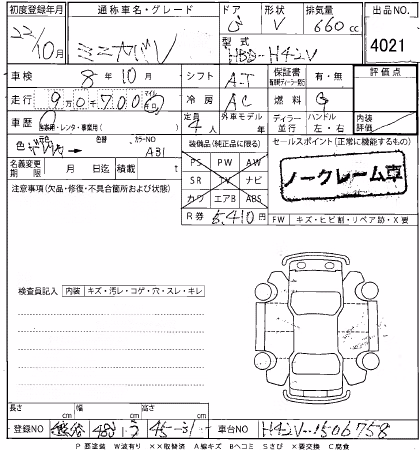 初度登録年月 通称車名・グレード ドア 形状 排気量 出品NO.
22/10月 ミニカバV 5 V 660cc 4021
型式 HBD-H42V
車検 8年10月 シフト AT 保証書 有・無 評価点
走行 9万0千700 マイル 冷房 AC 燃料 G
車歴 自家用・レンタ・事業用( ) 定員 4人 外車モデル 年 ディーラー 並行 ハンドル 左・右 内装評価
色 色替 カラーNO A31 装備品(純正品に限る) セールスポイント(正常に機能するもの)
名義変更期限 月 日迄 積載 t
PS PW AW
SR TV ナビ
カワ エアB ABS
ノークレーム車
注意事項(欠品・修復・不具合箇所および状態)
R券 5,410円 FW キズ・ヒビ割・リペア跡・X要
検査員記入 内装 キズ・汚レ・コゲ・穴・スレ・キレ
長さ cm 幅 cm 高さ cm
登録NO 熊谷 480 う 45-31 車台NO H42V-1506758
P 要塗装 W波有り ××取替済 A線キズ Bヘコミ Sさび ×要交換 C腐食